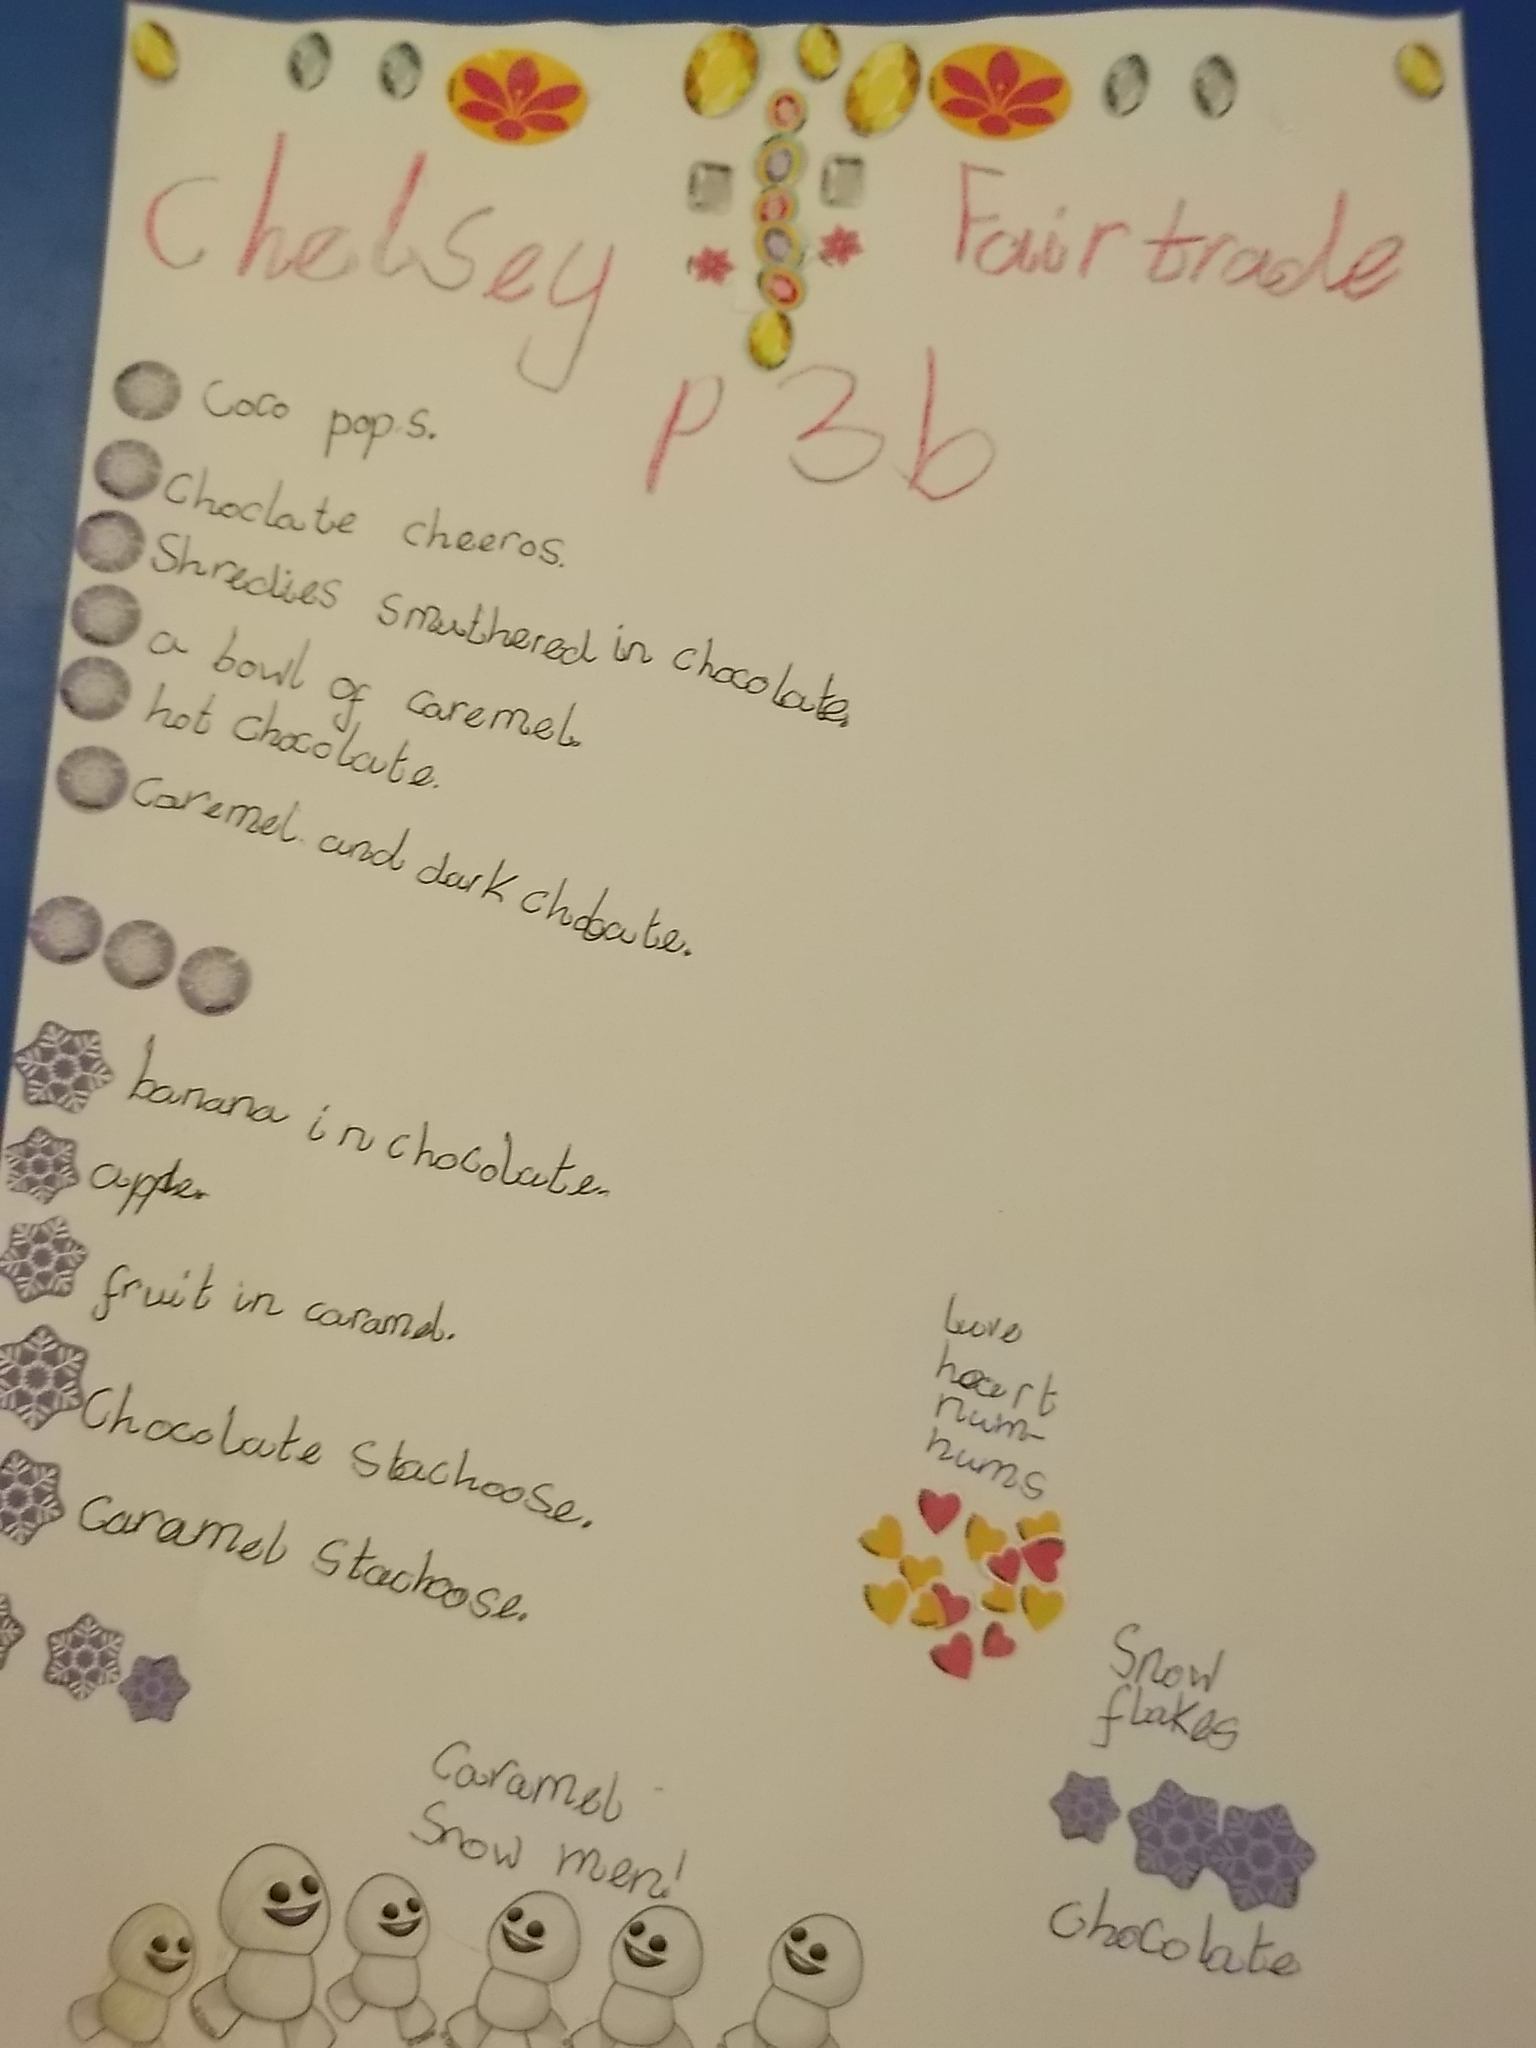 Chelsey Fairtrade
p 3b
Coco pops.
Choclate cheeros.
Shredies smuthered in chocolate.
a bowl of caremel.
hot chocolate.
Caremel and dark chocolate.
banana in chocolate.
apple.
fruit in caramel.
Chocolate Stachoose.
Caramel Stachoose.
Love
heart
num-
nums
Snow
flakes
chocolate
Caramel
Snow men!